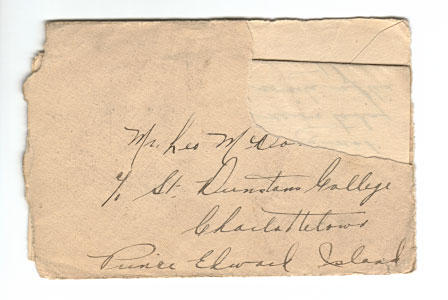 Mr. Leo
c/o St. Dunstans College
Charlottetown
Prince Edward Island